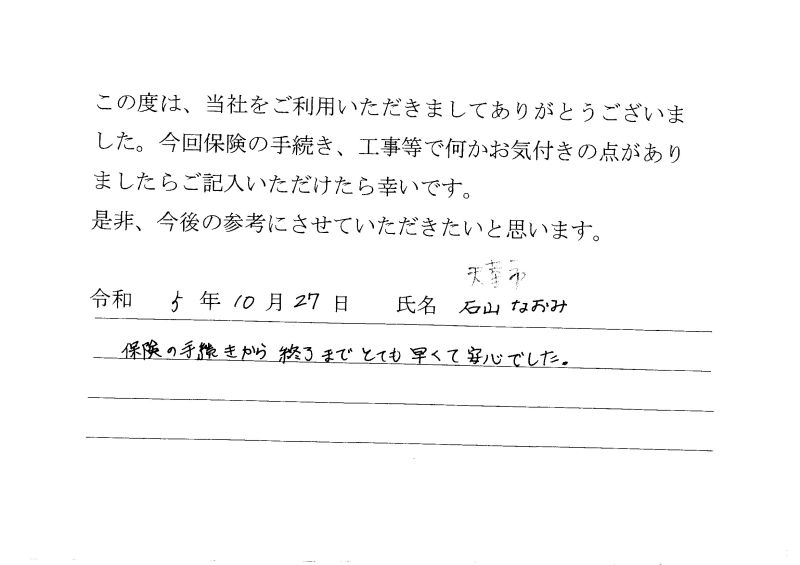 この度は、当社をご利用いただきましてありがとうございま
した。今回保険の手続き、工事等で何かお気付きの点があり
ましたらご記入いただけたら幸いです。
是非、今後の参考にさせていただきたいと思います。
令和 5 年 10 月 27 日 氏名 石山 なおみ
保険の手続きから 終了まで とても 早くて 安心でした。